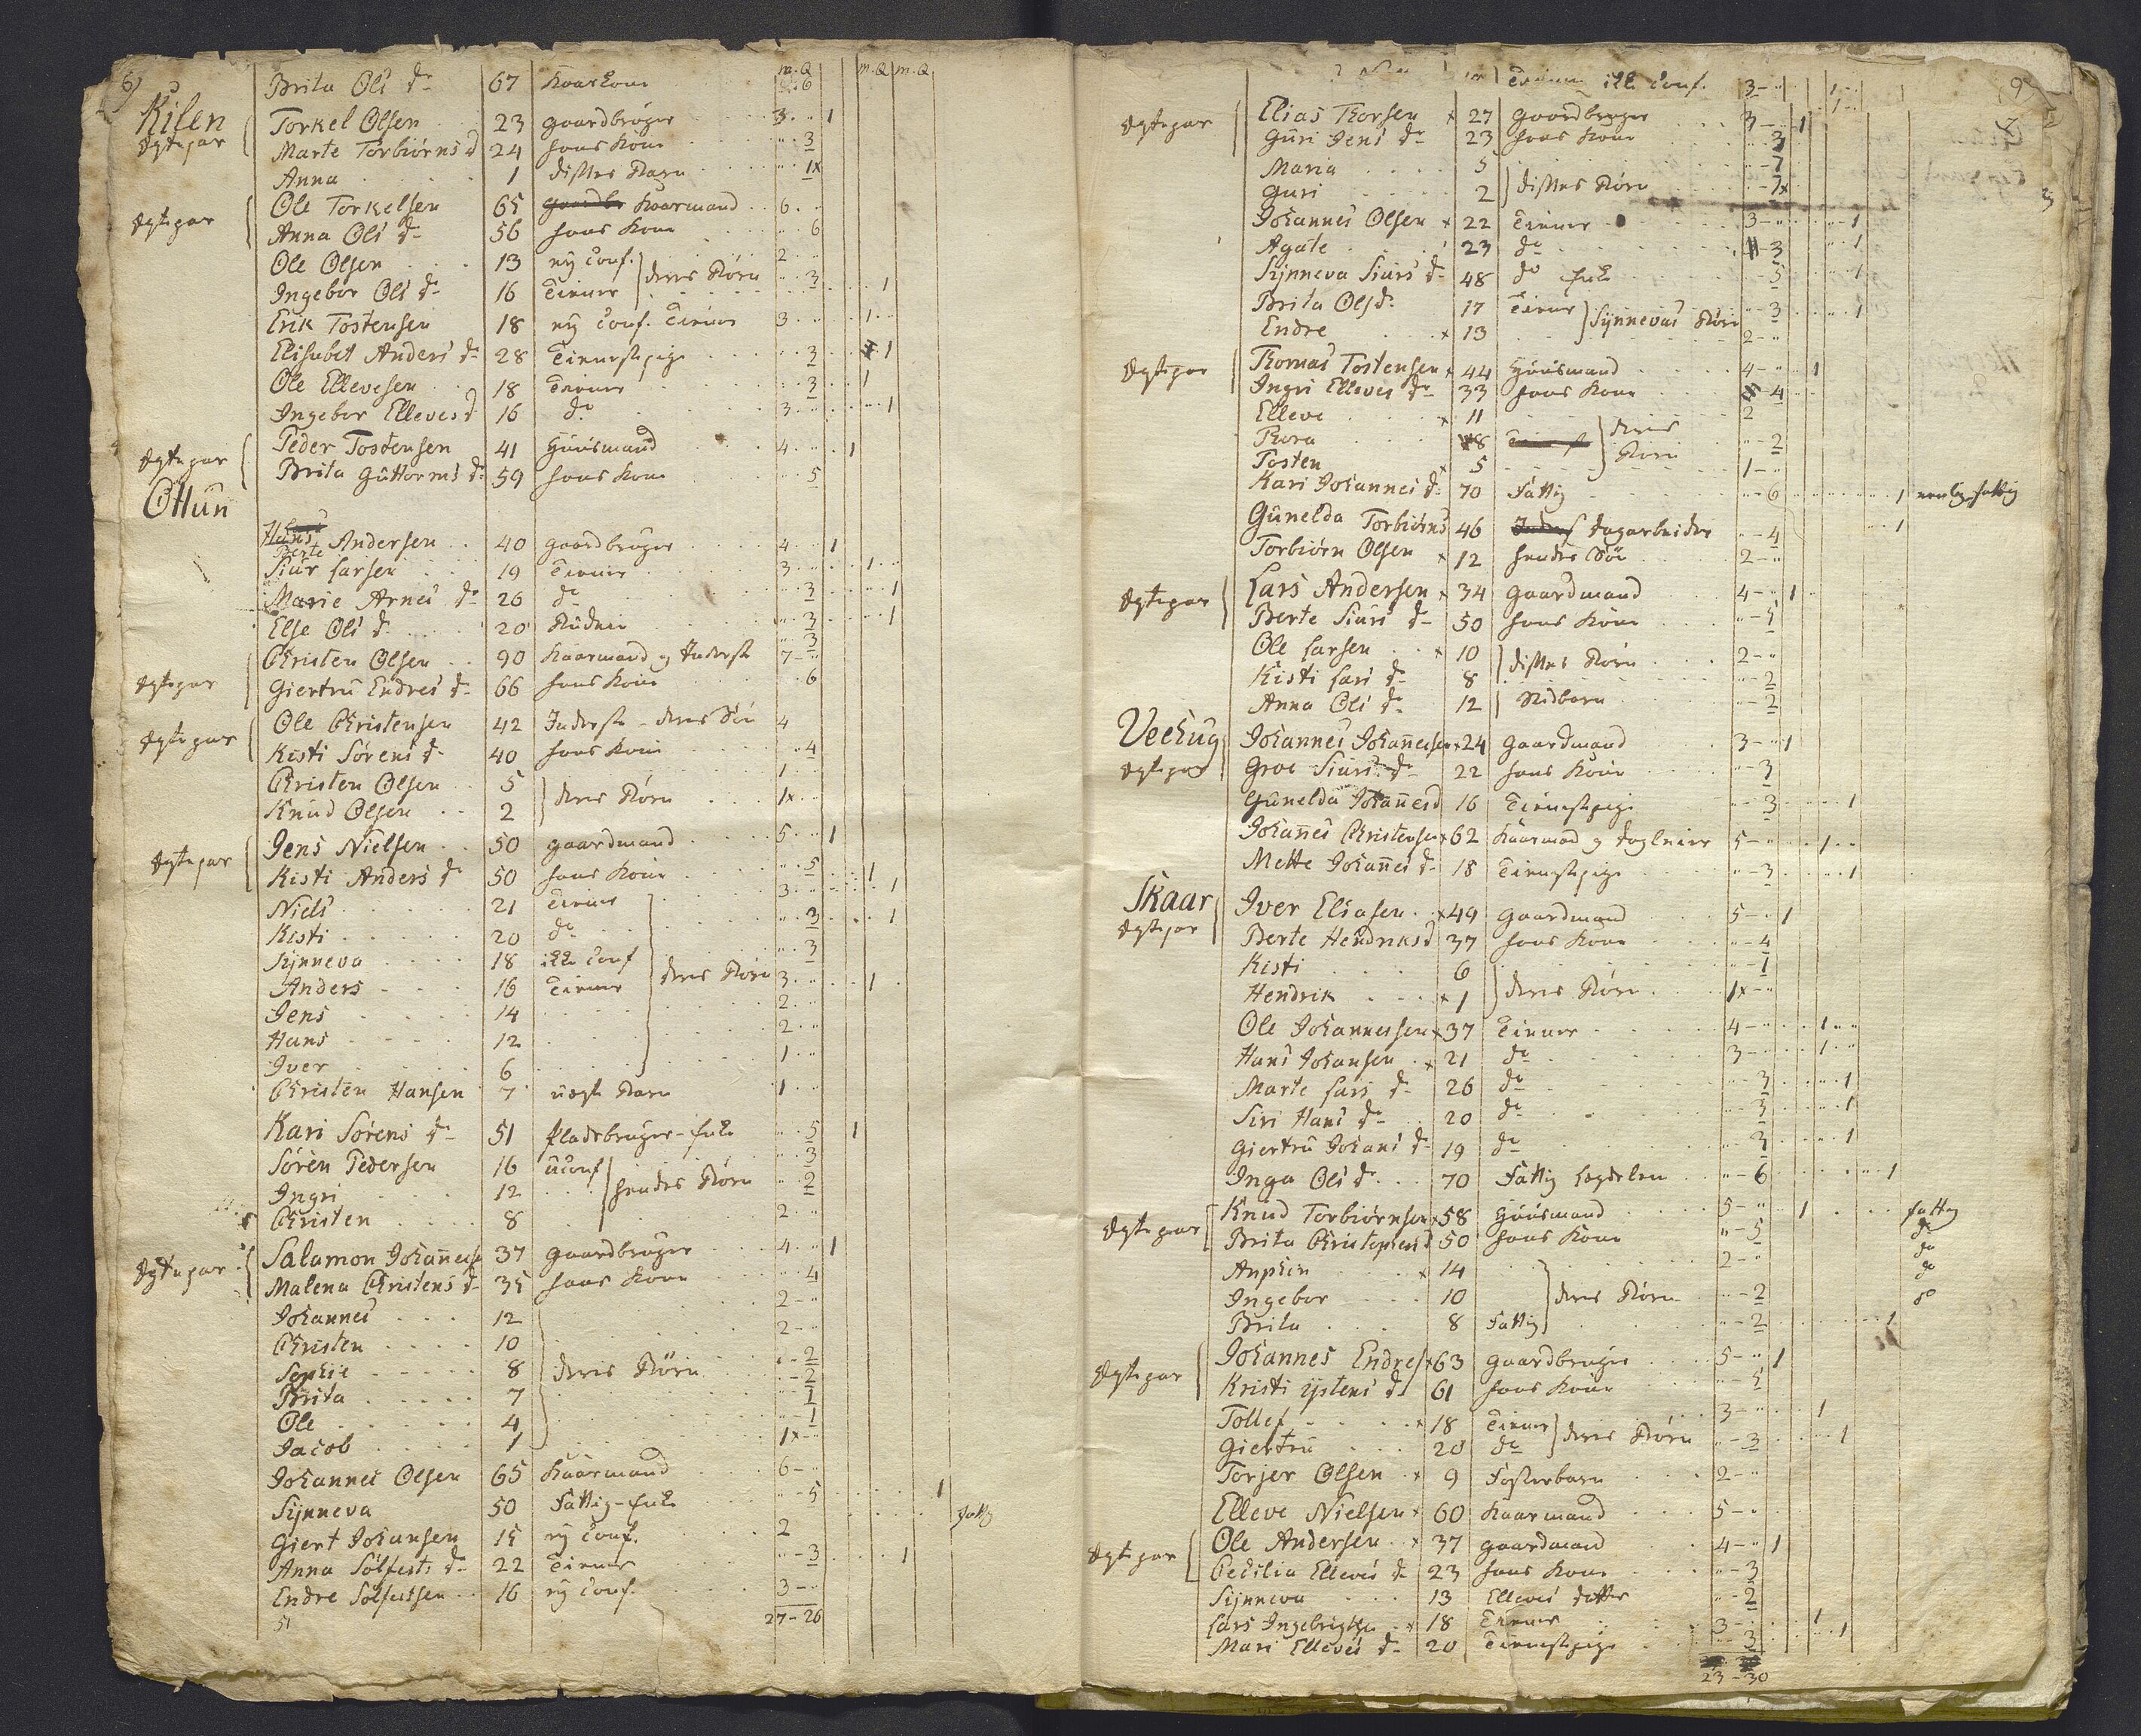 8)
m.Q m.Q m.Q
Brita Ols dr 67 Kaarkone 6
Kilen Torkel Olsen 23 gaardbruger 3 1
Ægtepar Marte Torbiörns d 24 hans Kone 3
Anna 1 disses Barn 1x
Ægtepar Ole Torkelsen 65 Kaarmand 6
Anna Ols dr 56 hans Kone 6
Ole Olsen 13 ny Conf. 2
Ingebor Ols dr 16 Tiener deres Börn 3 1
Erik Tostensen 18 ny Conf. Tiener 3 1
Elisabet Anders dr 28 Tienestpige 3 1
Ole Ellevesen 18 Tiener 3 1
Ingebor Elleves d 16 do 3 1
Ægtepar Peder Tostensen 41 Huusmand 4 1
Brita Guttorms dr 59 hans Kone 5
Ottun
Hans Andersen 40 gaardbruger 4 1
Berte
Siur Larsen 19 Tiener 3 1
Marie Arnes dr 26 do 3 1
Else Ols d 20 Budeie 3 1
3
Christen Olsen 90 Kaarmand og Inderst 7 - "
Ægtepar Giertru Endres dr 66 hans Kone 6
Ægtepar Ole Christensen 42 Inderst - deres Sön 4
Kisti Sörens dr 40 hans Kone 4
Christen Olsen 5 1
Knud Olsen 2 deres Börn 1x
Ægtepar Jens Nielsen 50 gaardmand 5 1
Kisti Anders dr 50 hans Kone 5
Niels 21 Tiener 3 1
Kisti 20 do 3 1
Synneva 18 ikke Conf 3
Anders 16 Tiener deres Börn 3 1
Jens 14 2
Hans 12 2
Iver 6 1
Christen Hansen 7 uægte Barn 1
Kari Sörens dr 51 pladsbruger - Enke 5 1
Sören Pedersen 16 uconf 3
Ingri 12 hendes Börn 2
Christen 8 2
Ægtepar Salamon Johanness 37 gaardbruger 4 1
Malena Christens dr 35 hans Kone 4
Johannes 12 2 - "
Christen 10 2 - "
Sophie 8 deres Börn 2
Brita 7 2
Ole 4 1
Jacob 1 1x
Johannes Olsen 65 Kaarmand 6 - "
Synneva 50 Fattig - Enke 5 1
Giert Johansen 15 ny Conf. 2 fattig
Anna Solfests dr 22 Tiener 3 1
Endre Solfestsen 16 ny Conf. 3
51 27 - 26
9)
Tiener ikke Conf. 3 - " 1
Ægtepar Elias Thorsen x 27 gaardbruger 3 - " 1
Guri Jens dr 23 hans Kone 3
Maria 5 1
Guri 2 disses Börn 1x
Johannes Olsen x 22 Tiener 3 - " 1
Agate 23 do 3 1
Synneva Siurs dr 48 do Enke 5 1
Brita Ols dr 17 Tiener 3 1
Endre x 13 Synnevas Börn 2 - "
Ægtepar Thomas Tostensen x 44 Huusmand 4 - " 1
Ingri Elleves dr 33 hans Kone 4
Elleve x 11 2
Thora 8 deres 2
Tosten x 5 Börn 1 - "
Kari Johannes dr 70 Fattig " - 6 1
Gunelda Torbiörns 46 dagarbeider " - 4 1
Torbiörn Olsen x 12 hendes Sön 2 - "
Ægtepar Lars Andersen x 34 gaardmand 4 - " 1
Berte Siurs dr 50 hans Kone " - 5
Ole Larsen x 10 2 - "
Kisti Lars dr 8 disses Börn " - 2
Anna Ols dr 12 Stedbarn " - 2
Veehug Johannes Johannesen x 24 gaardmand 3 - " 1
Ægtepar Groe Siurs dr 22 hans Kone " - 3
Gunelda Johannesd 16 Tienestpige " - 3 1
Johannes Christensen x 62 Kaarmand og dagleier 5 - " 1
Mette Johannes dr 18 Tienestpige " - 3 1
Skaar Iver Eliasen x 49 gaardmand 5 - " 1
Ægtepar Berte Hendriks d 37 hans Kone " - 4
Kisti 6 " - 1
Hendrik x 1 deres Börn 1x - "
Ole Johannessen x 37 Tiener 4 - " 1
Hans Johansen x 21 do 3 - " 1
Marte Lars dr 26 do " - 3 1
Siri Hans dr 20 do " - 3 1
Giertru Johans dr 19 do " - 3 1
Inga Ols dr 70 Fattig Lægdelem " - 6 1
Ægtepar Knud Torbiörnsen x 58 Huusmand 5 - " 1 fattig
Brita Christophers d 50 hans Kone " - 5 do
Anphin x 14 2 - " do
Ingebor 10 deres Börn " - 2 do
Brita 8 Fattig " - 2 1 do
Ægtepar Johannes Endres x 63 gaardbruger 5 - " 1
Kristi Ijstens dr 61 hans Kone " - 5
Tollef x 18 Tiener 3 - " 1
Giertru 20 do deres Börn " - 3 1
Torjer Olsen x 9 Fosterbarn 2 - "
Elleve Nielsen x 60 Kaarmand 5 - "
Ægtepar Ole Andersen x 37 gaardmand 4 - " 1
Cecilia Elleves dr 23 hans Kone " - 3
Synneva 13 Elleves datter " - 2
Lars Ingebrigtsen x 18 Tiener 3 - " 1
Mari Elleves dr 20 Tienestpige " - 3 1
23 - 30